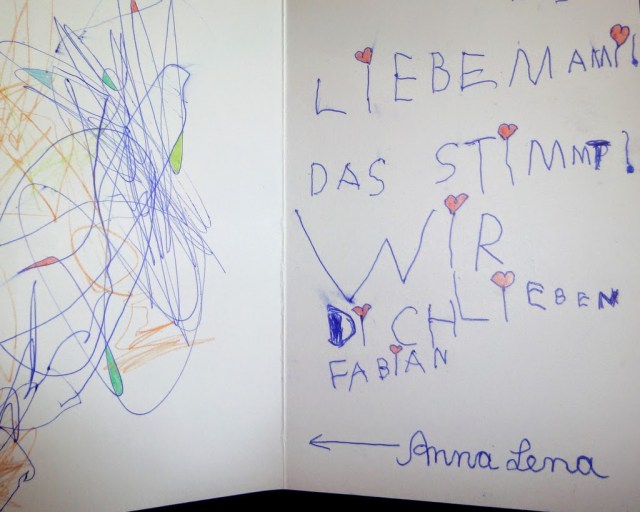 LIEBE MAMI!
DAS STIMMT!
WIR
LIEBEN
DICH
FABIAN
Anna Lena